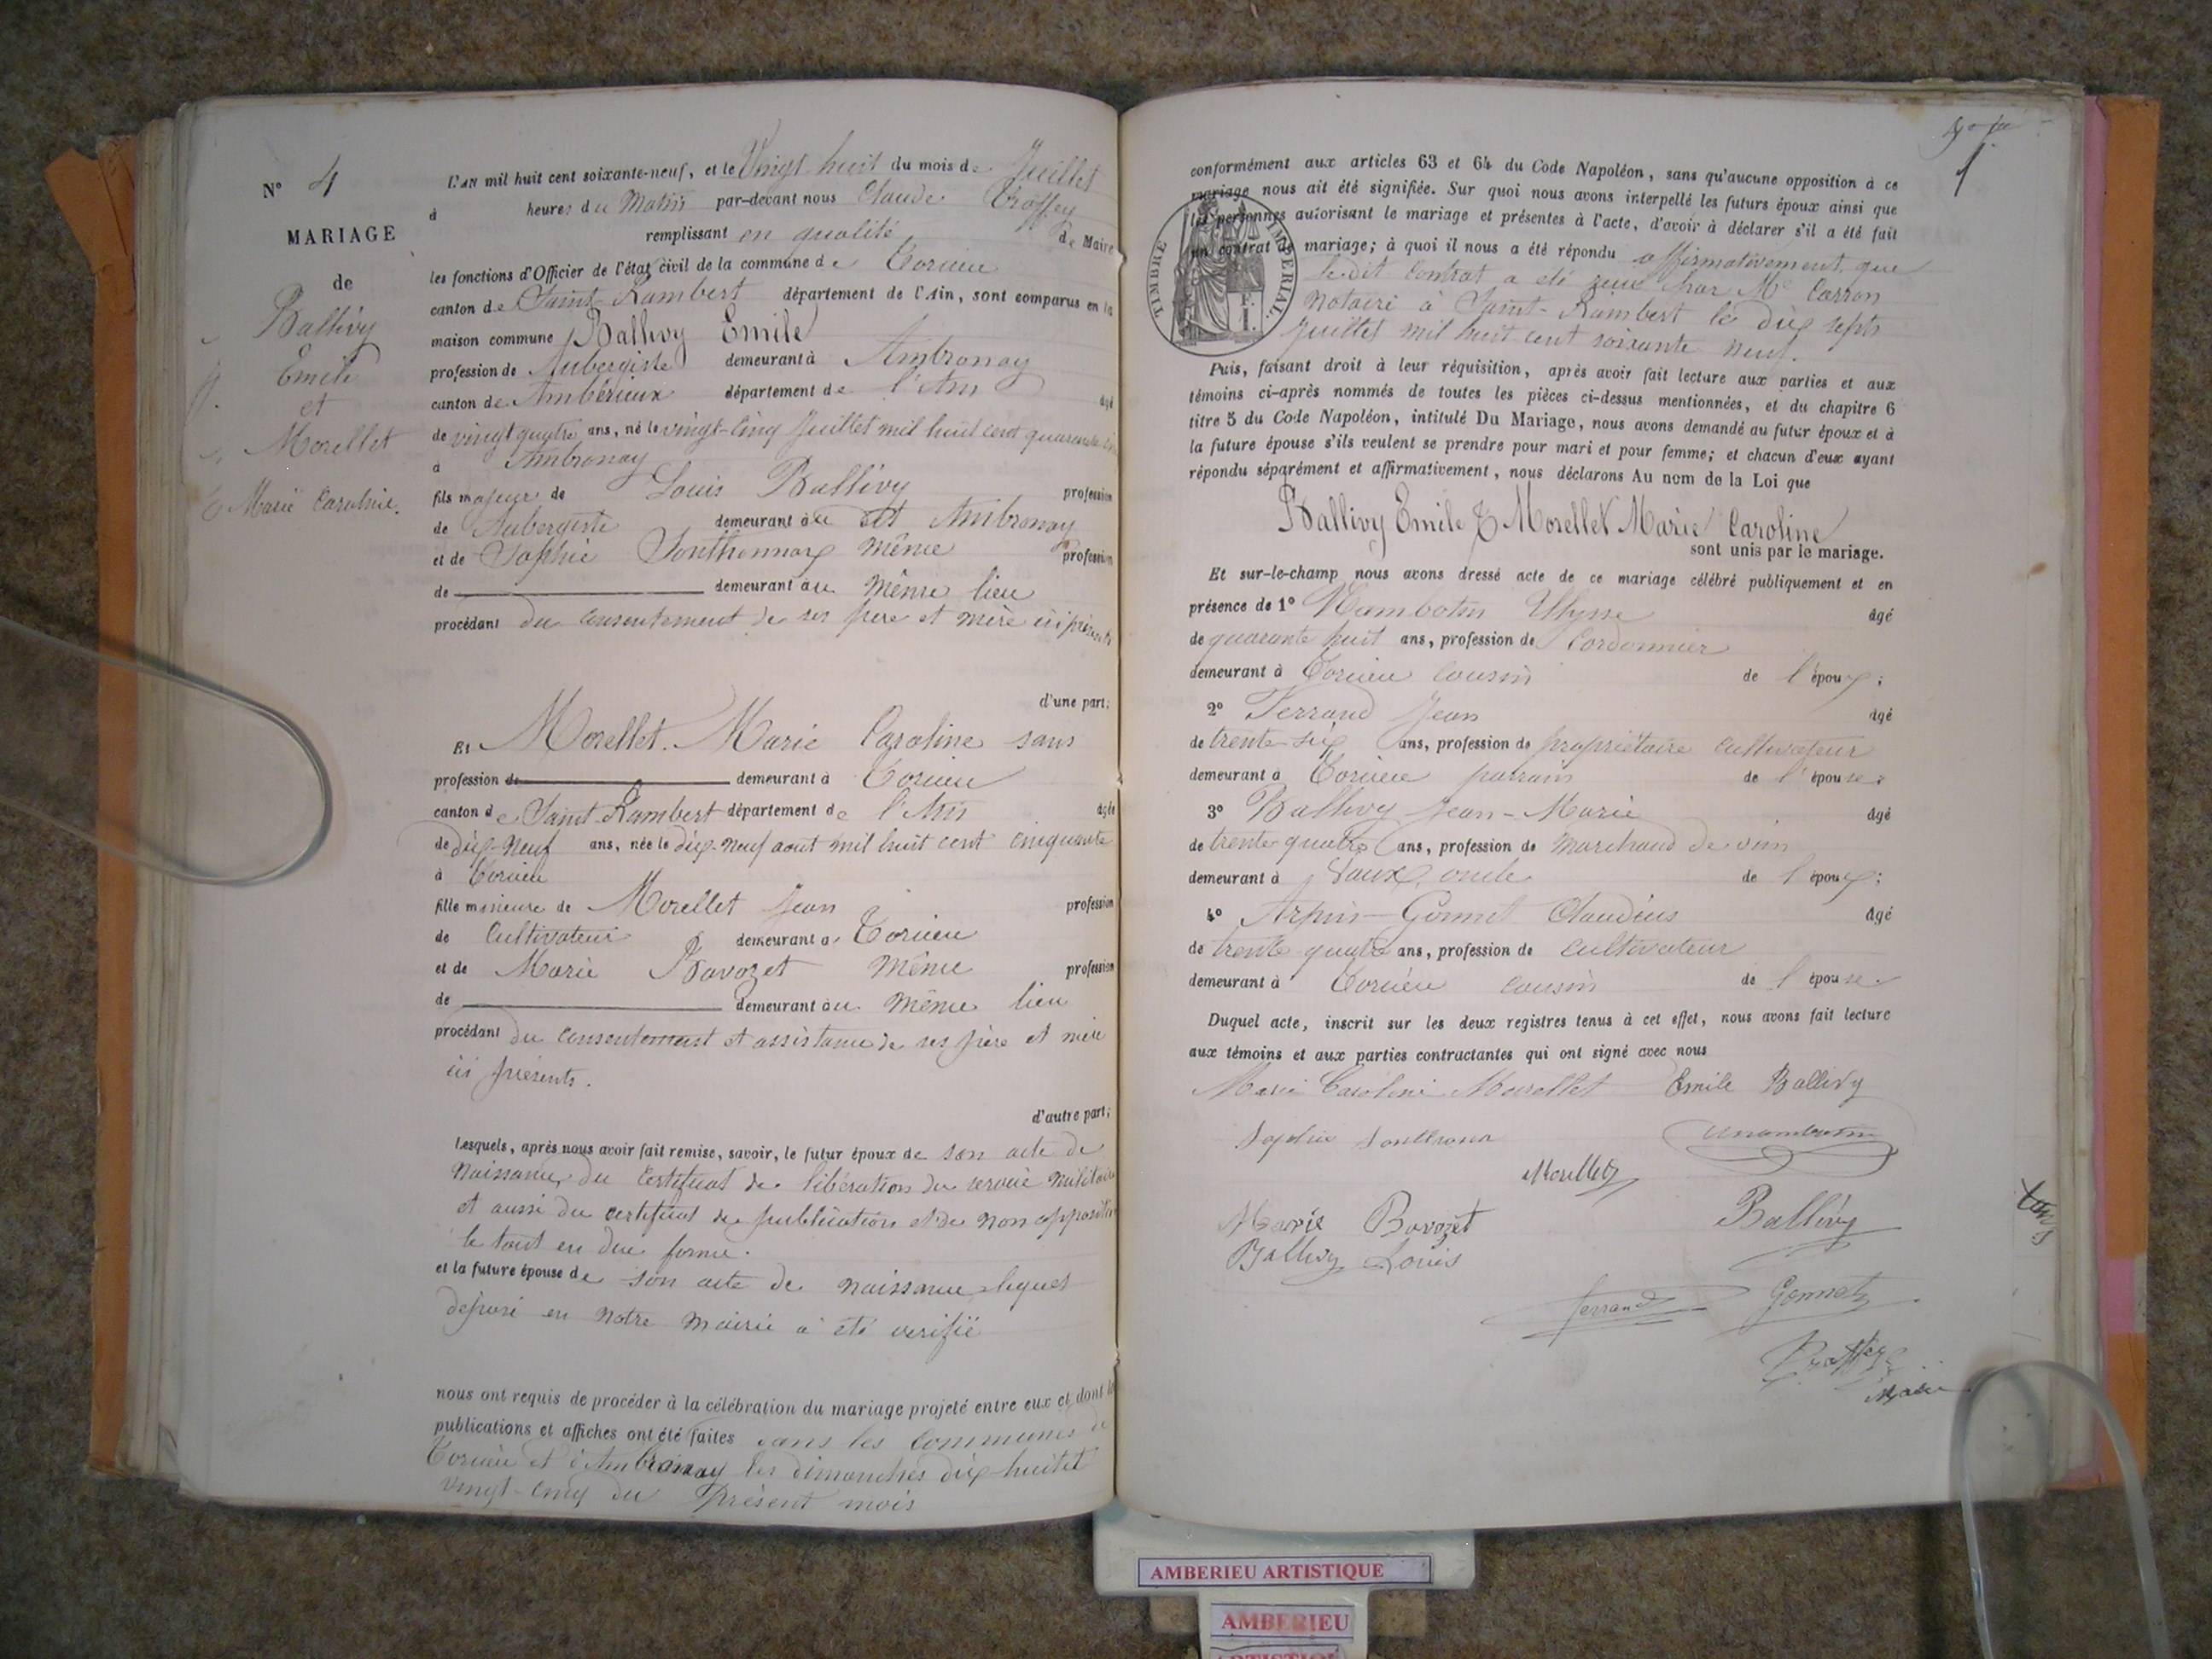 N° 4
MARIAGE
de
Ballivy
Emile
et
Morellet
Marie Caroline.
L'an mil huit cent soixante-neuf, et le Vingt huit du mois de Juillet
à heures du Matin par-devant nous Claude
remplissant en qualité de Maire
les fonctions d'Officier de l'état civil de la commune de Torcieu
canton de Saint-Rambert département de l'Ain, sont comparus en la
maison commune Ballivy Emile
profession de Aubergiste demeurant à Ambronay
canton de Ambérieux département de l'Ain âgé
de vingt quatre ans, né le vingt-cinq Juillet mil huit cent quarante
à Ambronay
fils majeur de Louis Ballivy profession
de Aubergiste demeurant au dit Ambronay
et de Sophie Sonthonnax même profession
de demeurant au même lieu
procédant du consentement de ses père et mère ici présents
d'une part;
Et Morellet Marie Caroline sans
profession de demeurant à Torcieu
canton de Saint-Rambert département de l'Ain âgée
de dix-neuf ans, née le dix-neuf aout mil huit cent cinquante
à Torcieu
fille mineure de Morellet Jean profession
de Cultivateur demeurant à Torcieu
et de Marie Bavozet même profession
de demeurant au même lieu
procédant du consentement et assistance de ses père et mère
ici présents.
d'autre part;
Lesquels, après nous avoir fait remise, savoir, le futur époux de son acte de
naissance, du certificat de libération du service militaire
et aussi du certificat de publication et de non opposition
le tout en due forme.
et la future épouse de son acte de naissance lequel
déposé en notre mairie a été verifié
nous ont requis de procéder à la célébration du mariage projeté entre eux et dont les
publications et affiches ont été faites dans les communes de
Torcieu et d'Ambronay les dimanches dix-huit et
vingt-cinq du présent mois
conformément aux articles 63 et 64 du Code Napoléon, sans qu'aucune opposition à ce
mariage nous ait été signifiée. Sur quoi nous avons interpellé les futurs époux ainsi que
les personnes autorisant le mariage et présentes à l'acte, d'avoir à déclarer s'il a été fait
un contrat de mariage; à quoi il nous a été répondu affirmativement, que
le dit Contrat a été reçu par Me Carron
Notaire à Saint-Rambert le dix sept
Juillet mil huit cent soixante neuf.
TIMBRE IMPERIAL.
F.
I.
Puis, faisant droit à leur réquisition, après avoir fait lecture aux parties et aux
témoins ci-après nommés de toutes les pièces ci-dessus mentionnées, et du chapitre 6
titre 5 du Code Napoléon, intitulé Du Mariage, nous avons demandé au futur époux et à
la future épouse s'ils veulent se prendre pour mari et pour femme; et chacun d'eux ayant
répondu séparément et affirmativement, nous déclarons Au nom de la Loi que
Ballivy Emile & Morellet Marie Caroline
sont unis par le mariage.
Et sur-le-champ nous avons dressé acte de ce mariage célébré publiquement et en
présence de 1° Ulysse âgé
de quarante huit ans, profession de Cordonnier
demeurant à Torcieu cousin de l'époux;
2° Ferrand Jean âgé
de trente-six ans, profession de propriétaire cultivateur
demeurant à Torcieu parrain de l'épouse;
3° Ballivy Jean-Marie âgé
de trente quatre ans, profession de marchand de vin
demeurant à Vaux, oncle de l'époux;
4° Arpin-Gonnet Claudius âgé
de trente quatre ans, profession de cultivateur
demeurant à Torcieu cousin de l'épouse.
Duquel acte, inscrit sur les deux registres tenus à cet effet, nous avons fait lecture
aux témoins et aux parties contractantes qui ont signé avec nous
Marie Caroline Morellet Emile Ballivy
Sophie
Morellet
Marie Bavozet Ballivy
Ballivy Louis
ferrand Gonnet
Maire
AMBERIEU ARTISTIQUE
AMBERIEU
ARTISTIQUE